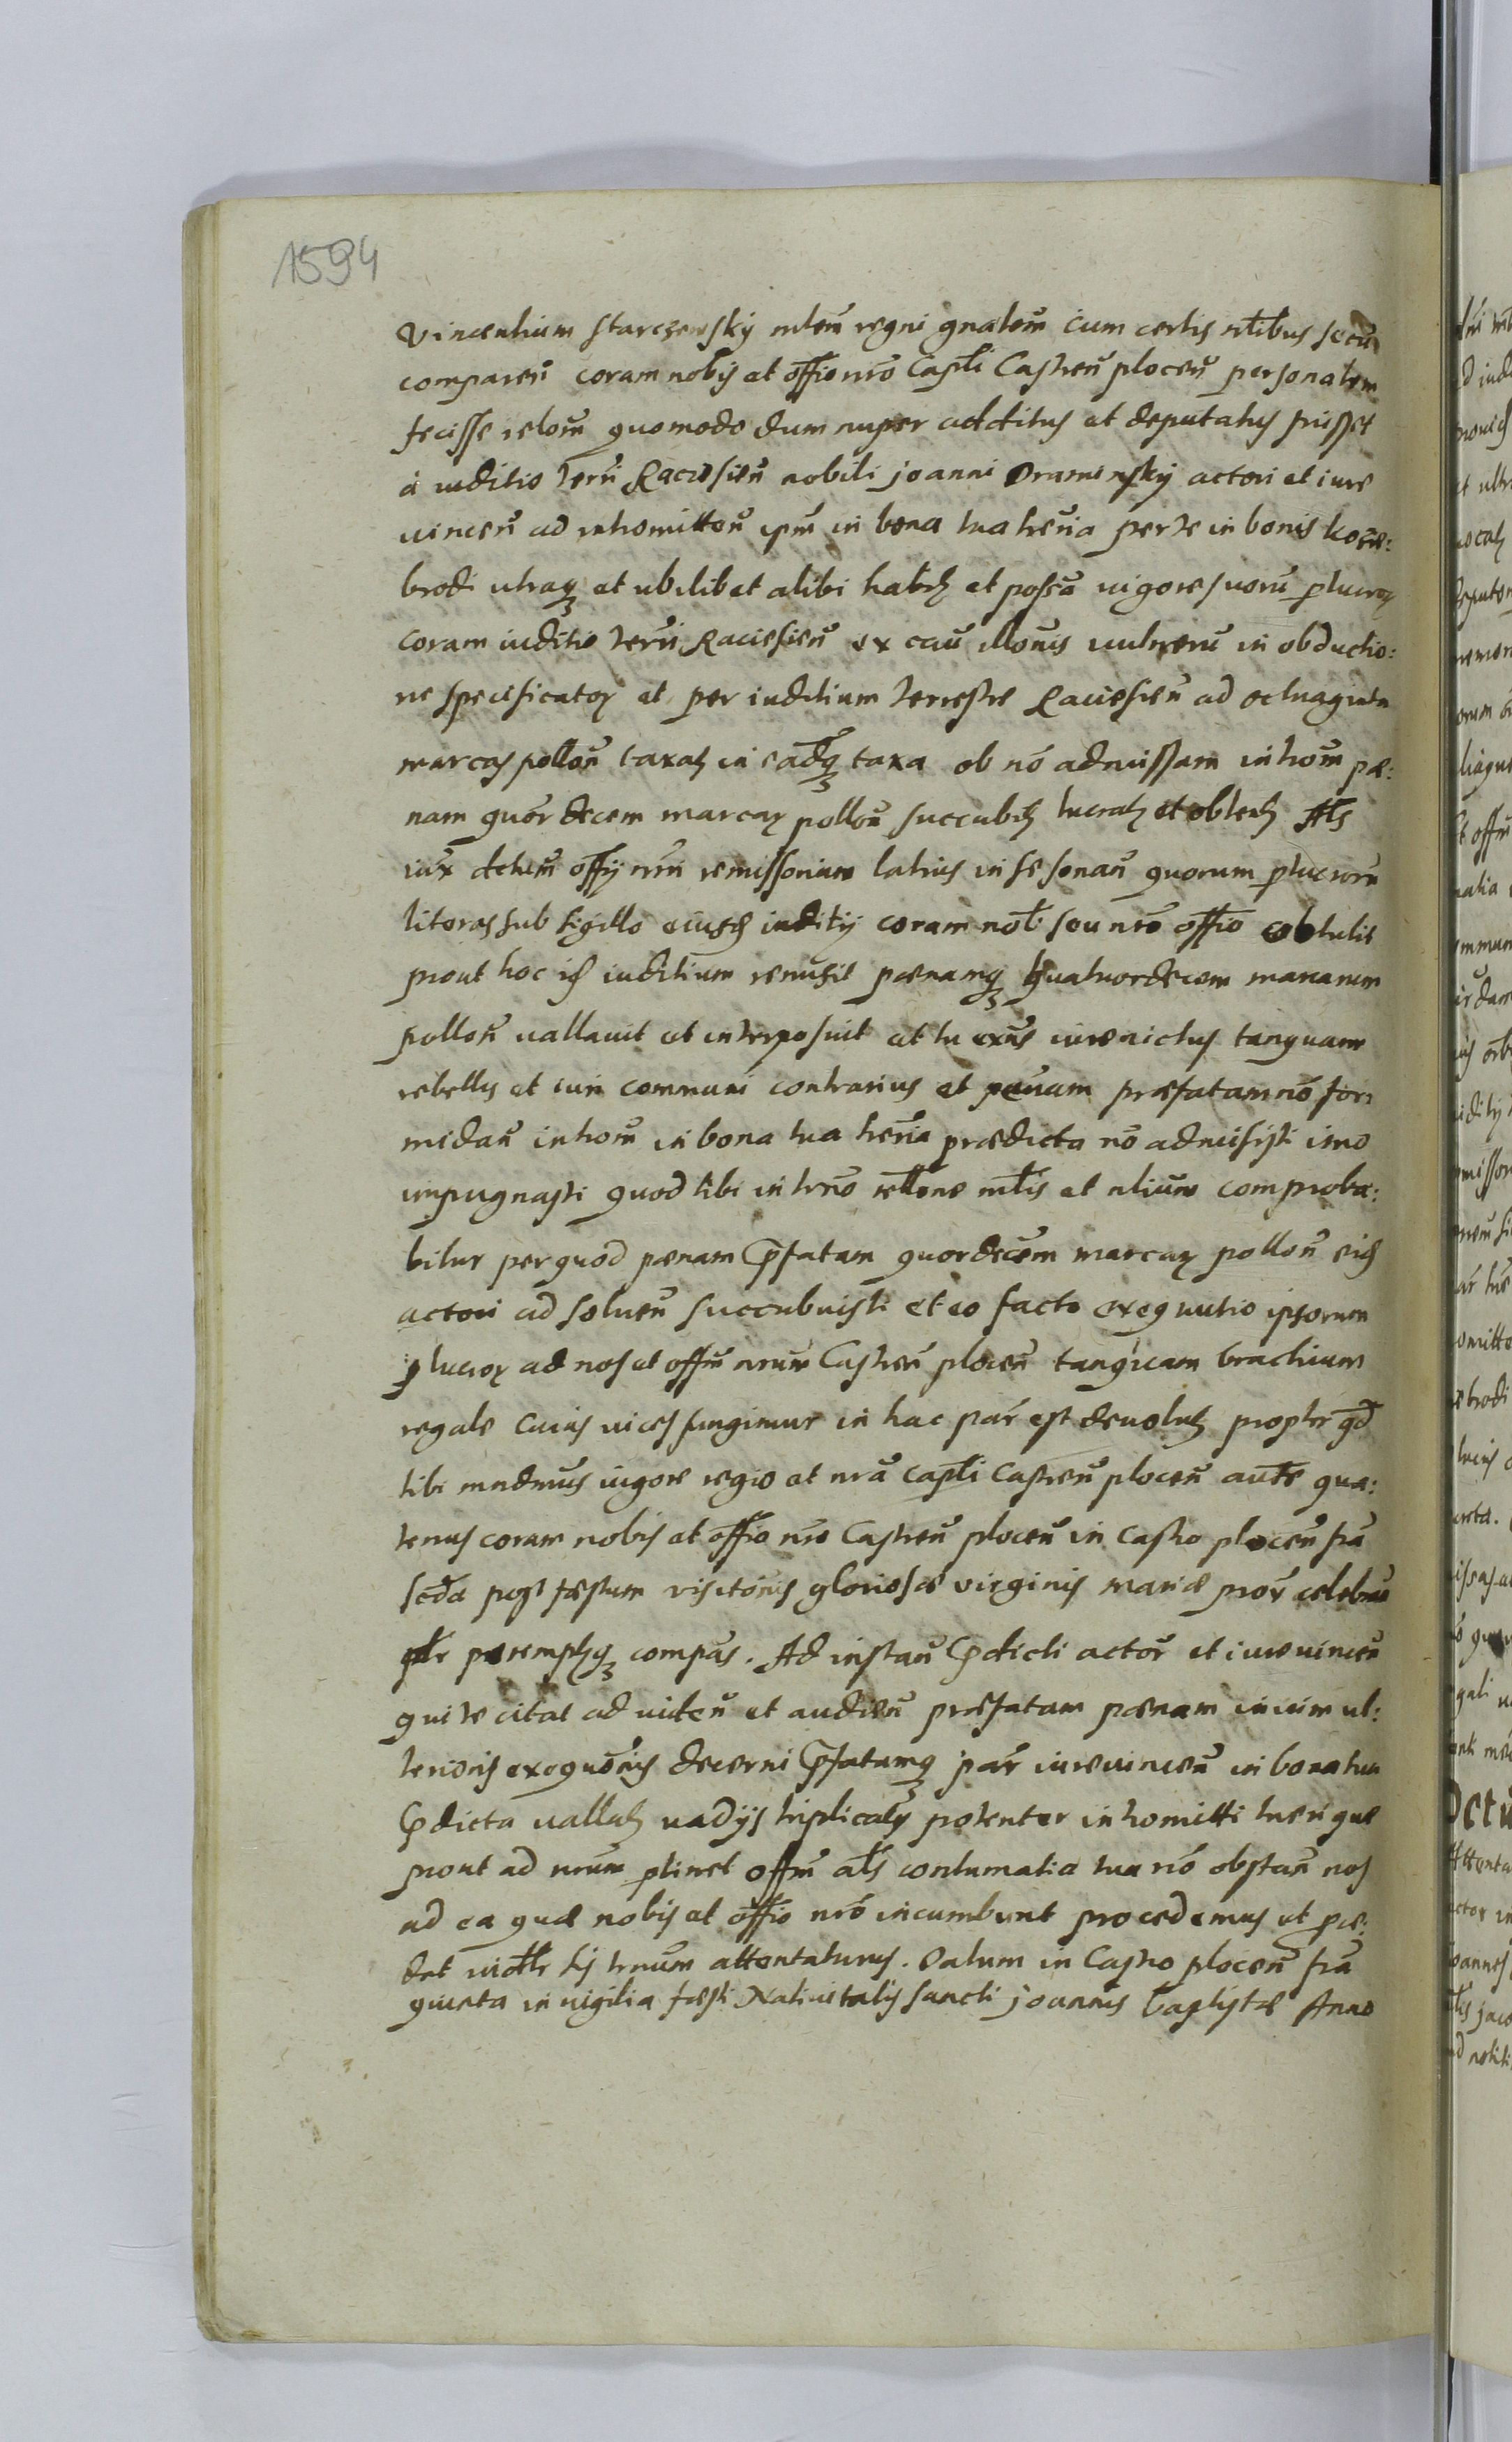 1594
Vincentium Starczewsky mlem̃ regni gnalem̃ cum certis nłibus secũ
comparen̄ coram nobis et offio nr̃o Capłi Castren̄ plocen̄ personalem
fecisse relom̃ quomodo dum nuper additus et deputatus fuisset
a iuditio terr̃i Raciesien̄ nobili Joanni Draminsky actori et iure
uincen̄ ad intromitten̄ ipm̃ in bona tua hær̃ia per te in bonis
brodi utraqꝫ et ubilibet alibi habit et possa uigore suorũ plucroꝝ
coram iuditio terr̃i Raciesien̄ ex cau illonis uulnerũ in obductio:
ne specificatoꝝ et per iuditium terrestre Raciesien̄ ad octuaginta
marcas pollon̄ taxat in eadqꝫ taxa ob nõ admissam introm̃ pæ:
nam quordecem marcaꝝ pollon̄ succubit lucrat et obtent Als
iux decrem̃ offij nr̃i remissorium latius in se sonan̄ quorum plucrorũ
literas sub sigillo eiusd iuditij coram nob seu nr̃o offio obtulit
prout hoc id iuditium remisit pænamqꝫ quatuordecem marcarum
pollon̄ uallauit et interposuit at tu exñs iureuictus tanquam
rebellis et iuri communi contrarius et pænam præfatam nõ for:
midan̄ introm̃ in bona tua hær̃ia prædicta nõ admisisti imo
impugnasti quod tibi in tr̃no rełłone młis et nlium comproba:
bitur per quod pænam p̃fatam quordecem marcaꝝ pollon̄ eid
actori ad soluen̄ succubuisti et eo facto exequutio ipsorum
plucroꝝ ad nos et offm̃ nrũm Castren̄ plocen̄ tanquam brachium
regale cuius uices fungimur in hac par̃ est deuolut propter qd̃
tibi mndmus uigore regio et nrã capłi Castren̄ plocen̄ aute qua:
tenus coram nobis et offio nr̃o Castren̄ plocen̄ in Castro plocen̄ fra
scda post festum visitõnis gloriosæ virginis mariæ prox̃ celebran
płr peremptqꝫ compas. Ad instan̄ p̃dicti actor̃ et iureuincen̄
qui te citat ad uiden̄ et audien̄ præfatam pænam in uim ul:
terioris exequõnis decerni p̃fatumqꝫ par̃ iureuincen̄ in bona tua
p̃dicta uallat uadijs triplicat potenter intromitti tuerique
prout ad nrũm ptinet offm̃ als contumatia tua nõ obstan̄ nos
ad ea quæ nobis et offio nr̃o incumbunt procedemus et præ:
dct uidłr hj trnum attentaturus. Datum in Castro plocen̄ fra
quinta in uigilia fæsti Natiuitatis sancti Joannis baptistæ Anno